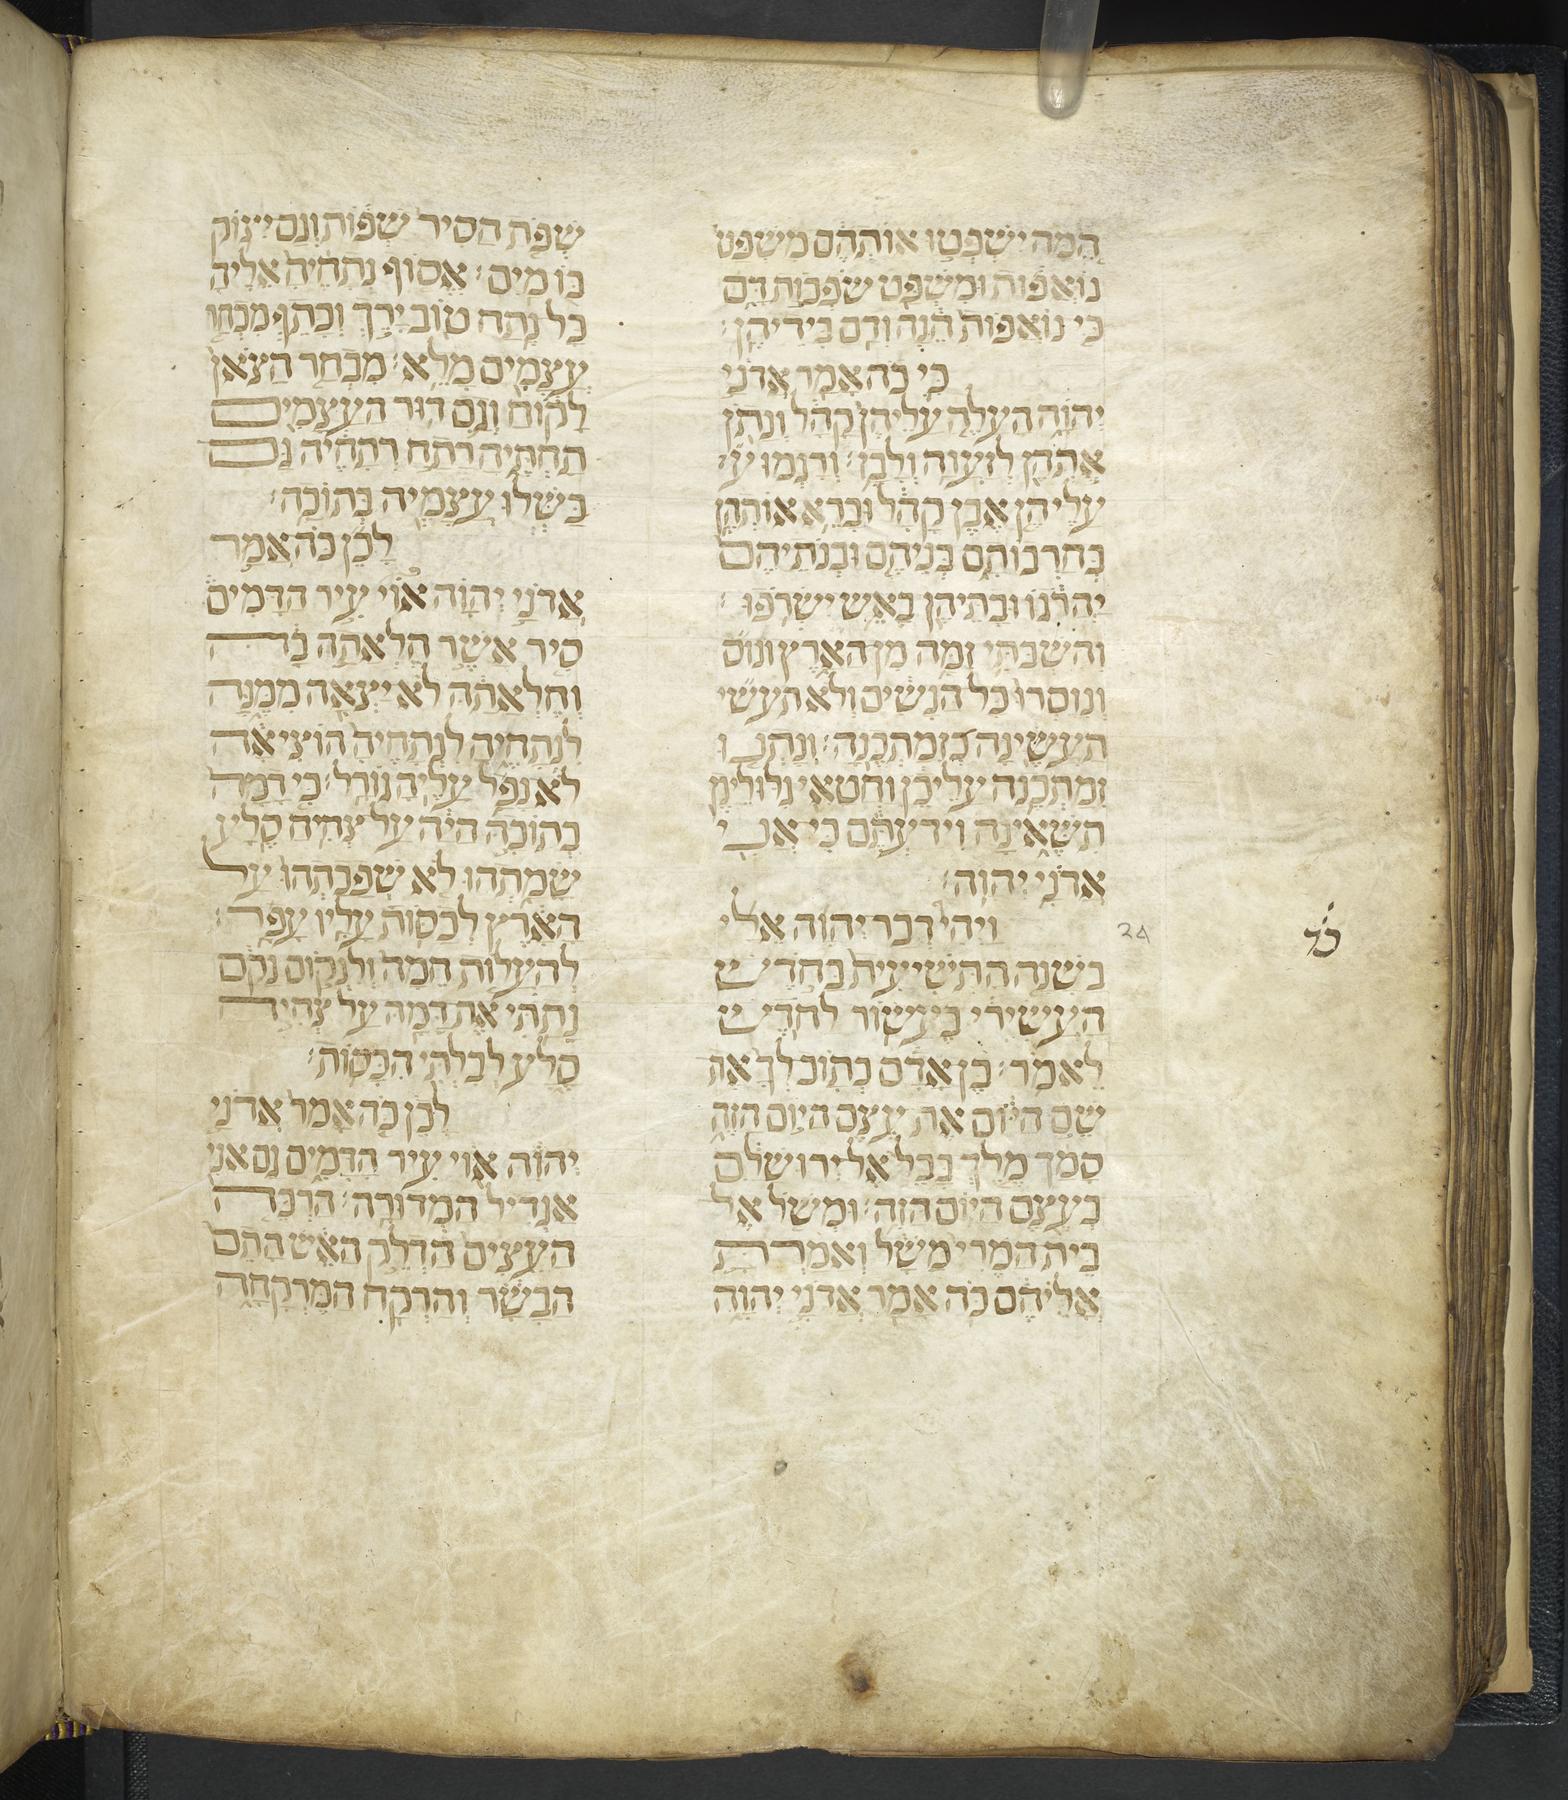 המה ישפטו אותהם משפט
נואפות ומשפט שפכות דם
כי נואפות הנה ודם בידיהן׃
כי כה אמר אדני
יהוה העלה עליהן קהל ונתן
אתהן לזעוה ולבז׃ ורגמו ע
עליהן אבן קהל וברא אותהן
בחרבותם בניהם ובנתיהם
יהרגו ובתיהן באש ישרפו׃
והשבתי זמה מן הארץ ונוס
ונוסרו כל הנשים ולא תעשי
תעשינה כזמתכנה׃ ונתנו
זמתכנה עליכן וחטאי גלוליכן
תשאינה וידעתם כי אני
אדני יהוה׃
ויהי דבר יהוה אלי
24
כד
בשנה התשיעית בחדש
העשירי בעשור לחדש
לאמר׃ בן אדם כתוב לך את
שם היום את עצם היום הזה
סמך מלך בבל אל ירושלם
בעצם היום הזה׃ ומשל אל
בית המרי משל ואמרת
אליהם כה אמר אדני יהוה
שפת הסיר שפות וגם יצוק
בו מים׃ אסוף נתחיה אליה
כל נתח טוב ירך וכתף מבחר
עצמים מלא׃ מבחר הצאן
לקוח וגם דור העצמים
תחתיה רתח רתחיה גם
בשלו עצמיה בתוכה׃
לכן כה אמר
אדני יהוה אוי עיר הדמים
סיר אשר חלאתה בה
וחלאתה לא יצאה ממנה
לנתחיה לנתחיה הוציאה
לא נפל עליה גורל׃ כי דמה
בתוכה היה על צחיח סלע
שמתהו לא שפכתהו על
הארץ לכסות עליו עפר׃
להעלות חמה ולנקום נקם
נתתי את דמה על צחיח
סלע לבלתי הכסות׃
לכן כה אמר אדני
יהוה אוי עיר הדמים גם אני
אגדיל המדורה׃ הרבה
העצים הדלק האש התם
הבשר והרקח המרקחה